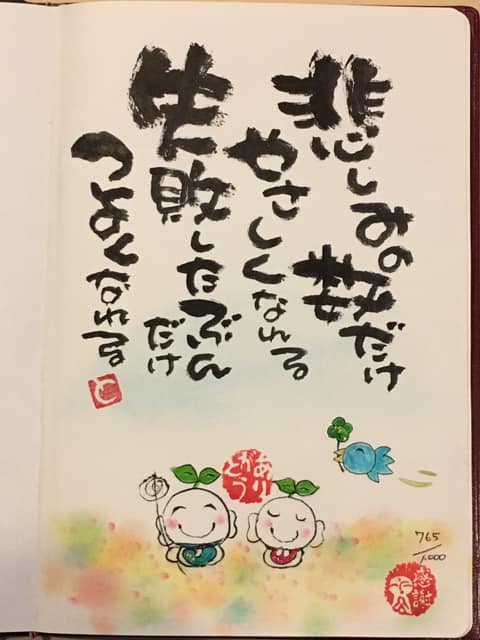 悲しみの数だけ
やさしくなれる
失敗したぶんだけ
つよくなれる
と
ありがとう
765/1.000
感謝